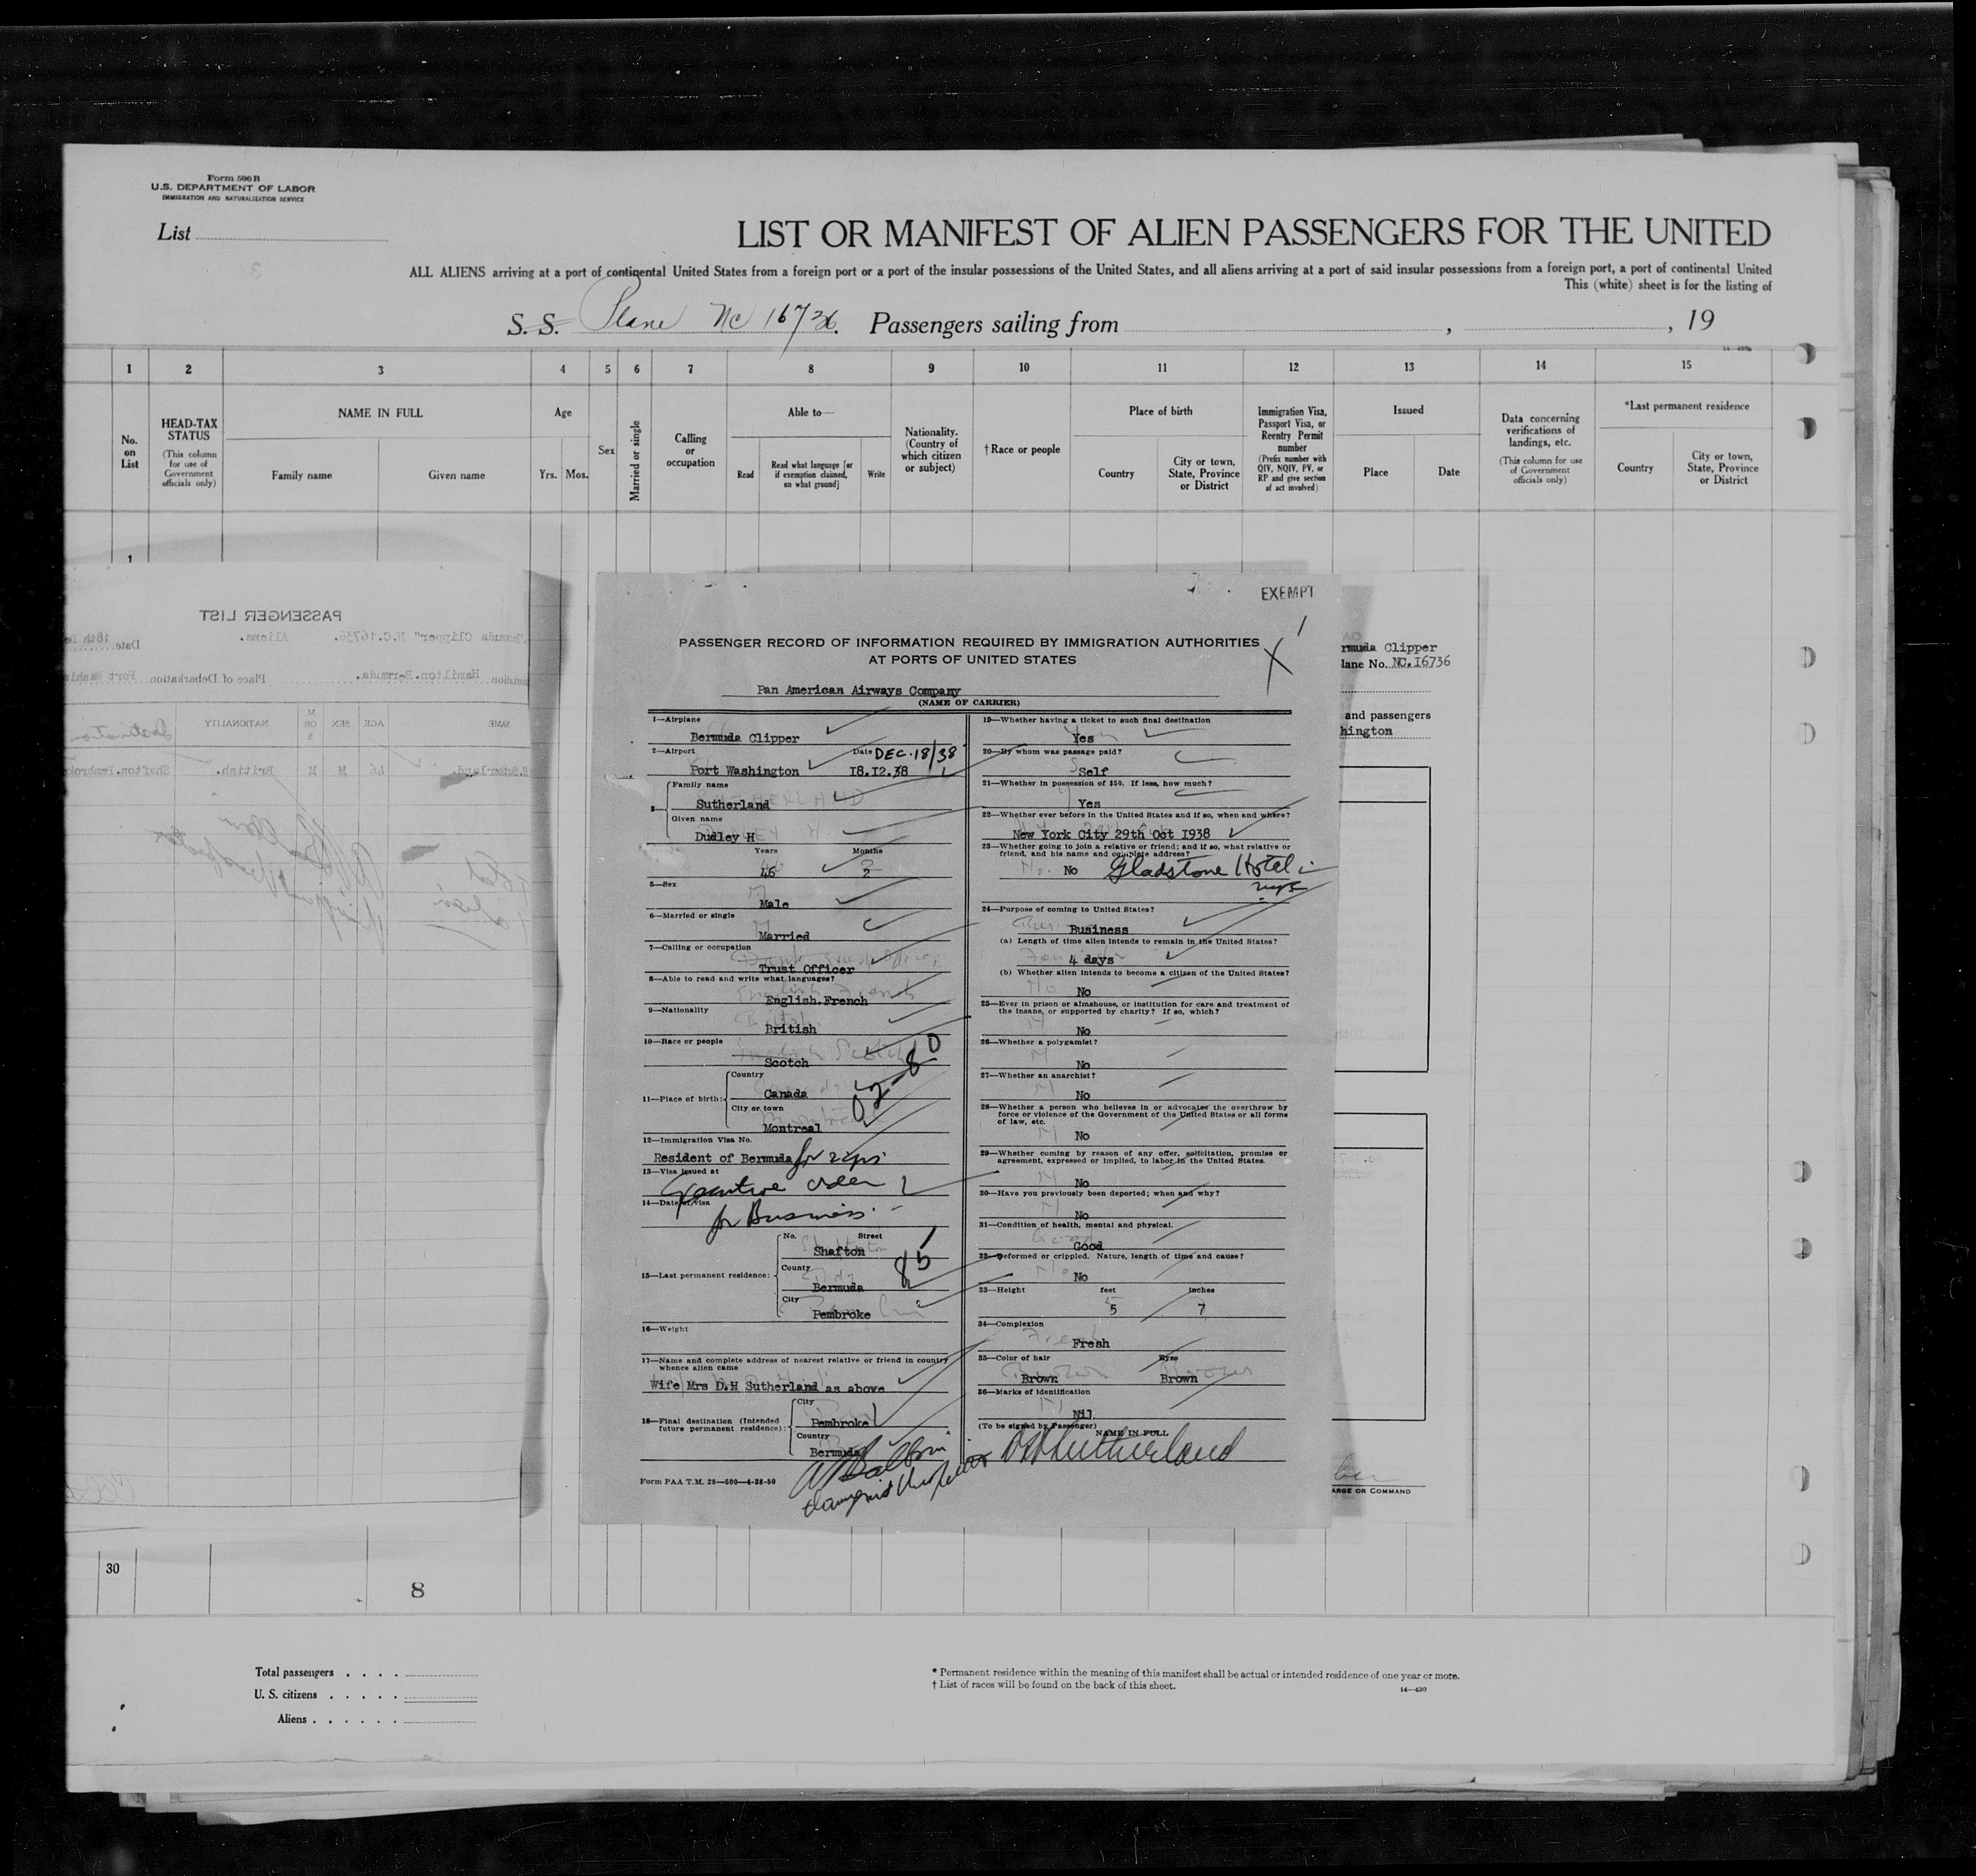 Form 500 B
U.S. DEPARTMENT OF LABOR
IMMIGRATION AND NATURALIZATION SERVICE
List
LIST OR MANIFEST OF ALIEN PASSENGERS FOR THE UNITED
ALL ALIENS arriving at a port of continental United States from a foreign port or a port of the insular possessions of the United States, and all aliens arriving at a port of said insular possessions from a foreign port, a port of continental United
This (white) sheet is for the listing of
S. S. Plane NC 16736. Passengers sailing from , , 19
1 2 3 4 5 6 7 8 9 10 11 12 13 14 15
No. on List
HEAD-TAX STATUS
(This column for use of Government officials only)
NAME IN FULL
Family name Given name
Age
Yrs. Mos.
Sex
Married or single
Calling or occupation
Able to—
Read
Read what language [or if exemption claimed, on what ground]
Write
Nationality. (Country of which citizen or subject)
† Race or people
Place of birth
Country
City or town, State, Province or District
Immigration Visa, Passport Visa, or Reentry Permit number
(Prefix number with QIV, NQIV, PV, or RP and give section of act involved)
Issued
Place Date
Data concerning verifications of landings, etc.
(This column for use of Government officials only)
*Last permanent residence
Country
City or town, State, Province or District
1
PASSENGER LIST
"Bermuda Clipper" N.C.16736. Aliens. Date 18th De
Hamilton.Bermuda. Place of Debarkation Port Washi
NAME AGE SEX M OR S NATIONALITY Destination
H.Sutherland. 46 M M British. Shafton.Pembroke
EXEMPT
PASSENGER RECORD OF INFORMATION REQUIRED BY IMMIGRATION AUTHORITIES
AT PORTS OF UNITED STATES
Pan American Airways Company
(NAME OF CARRIER)
1—Airplane
Bermuda Clipper
2—Airport Date DEC.18/38
Port Washington 18.12.38
3—
Family name
Sutherland
Given name
Dudley H
Years Months
46 2
5—Sex
Male
6—Married or single
Married
7—Calling or occupation
Trust Officer
8—Able to read and write what languages?
English.French
9—Nationality
British
10—Race or people
Scotch
11—Place of birth:
Country
Canada
City or town
Montreal
12—Immigration Visa No.
Resident of Bermuda for 2 yrs
13—Visa issued at
Executive order
14—Date of visa
for Business.
15—Last permanent residence:
No. Street
Shafton
County
Bermuda 85
City
Pembroke
16—Weight
17—Name and complete address of nearest relative or friend in country whence alien came
Wife Mrs D.H Sutherland as above
18—Final destination (Intended future permanent residence):
City
Pembroke
Country
Bermuda
Form PAA T.M. 28—500—4-38-50
19—Whether having a ticket to such final destination
Yes
20—By whom was passage paid?
Self
21—Whether in possession of $50. If less, how much?
Yes
22—Whether ever before in the United States and if so, when and where?
New York City 29th Oct 1938
23—Whether going to join a relative or friend; and if so, what relative or friend, and his name and complete address?
No Gladstone Hotel
24—Purpose of coming to United States?
Business
(a) Length of time alien intends to remain in the United States?
4 days
(b) Whether alien intends to become a citizen of the United States?
No
25—Ever in prison or almshouse, or institution for care and treatment of the insane, or supported by charity? If so, which?
No
26—Whether a polygamist?
No
27—Whether an anarchist?
No
28—Whether a person who believes in or advocates the overthrow by force or violence of the Government of the United States or all forms of law, etc.
No
29—Whether coming by reason of any offer, solicitation, promise or agreement, expressed or implied, to labor in the United States.
No
30—Have you previously been deported; when and why?
No
31—Condition of health, mental and physical.
Good
32—Deformed or crippled. Nature, length of time and cause?
No
33—Height feet inches
5 7
34—Complexion
Fresh
35—Color of hair Eyes
Brown Brown
36—Marks of identification
Nil
(To be signed by Passenger) NAME IN FULL
DHSutherland
rmuda Clipper
lane No. NC.16736
and passengers
hington
ARGE OR COMMAND
30
8
Total passengers
U. S. citizens
Aliens
* Permanent residence within the meaning of this manifest shall be actual or intended residence of one year or more.
† List of races will be found on the back of this sheet.
14—430